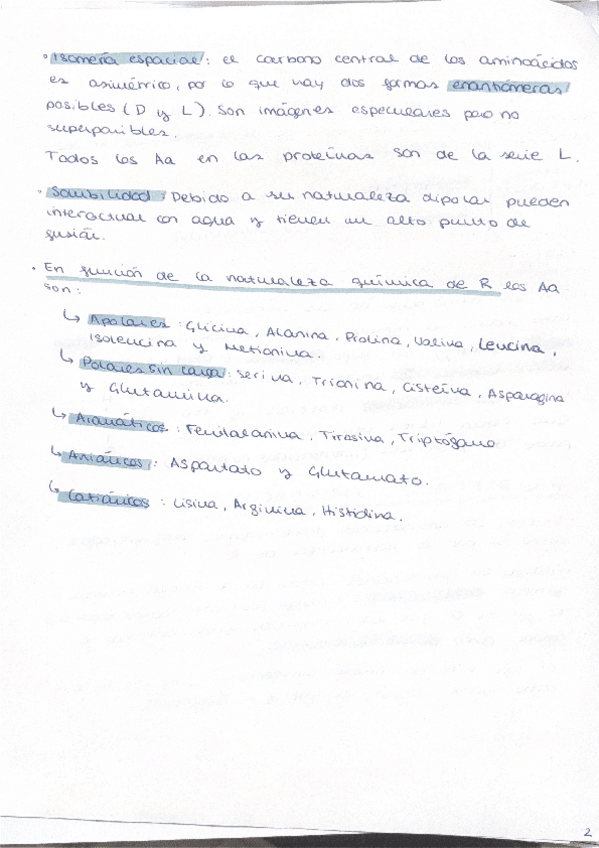 · Isomería espacial: el carbono central de los aminoácidos
es asimétrico, por lo que hay dos formas enantiómeras
posibles (D y L). Son imágenes especulares pero no
superponibles.
Todos los Aa en las proteínas son de la serie L.
· Solubilidad: Debido a su naturaleza dipolar pueden
interactuar con agua y tienen un alto punto de
fusión.
· En función de la naturaleza química de R los Aa
son:
↳ Apolares: Glicina, Alanina, Prolina, Valina, Leucina,
Isoleucina y Metionina.
↳ Polares sin carga: Serina, Trionina, Cisteína, Asparagina
y Glutamina.
↳ Aromáticos: Fenilalanina, Tirosina, Triptógano
↳ Aniónicos: Aspartato y Glutamato.
↳ Catiónicos: Lisina, Arginina, Histidina.
2